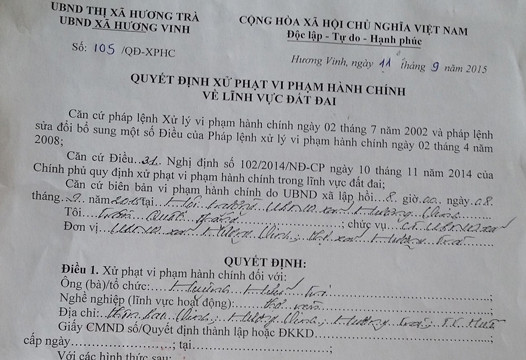 UBND THỊ XÃ HƯƠNG TRÀ
UBND XÃ HƯƠNG VINH
CỘNG HÒA XÃ HỘI CHỦ NGHĨA VIỆT NAM
Độc lập - Tự do - Hạnh phúc
Số: 105 /QĐ-XPHC
Hương Vinh, ngày 11 tháng 9 năm 2015
QUYẾT ĐỊNH XỬ PHẠT VI PHẠM HÀNH CHÍNH
VỀ LĨNH VỰC ĐẤT ĐAI
Căn cứ pháp lệnh Xử lý vi phạm hành chính ngày 02 tháng 7 năm 2002 và pháp lệnh
sửa đổi bổ sung một số Điều của Pháp lệnh xử lý vi phạm hành chính ngày 02 tháng 4 năm
2008;
Căn cứ Điều Nghị định số 102/2014/NĐ-CP ngày 10 tháng 11 năm 2014 của
Chính phủ quy định xử phạt vi phạm hành chính trong lĩnh vực đất đai;
Căn cứ biên bản vi phạm hành chính do UBND xã lập hồi 8 giờ 00 ngày 08
tháng 9 năm 2015 tại Hội trường UBND xã Hương Vinh
Tôi: Trần chức vụ: CT. UBND xã
Đơn vị: UBND xã Hương Vinh, thị xã Hương Trà
QUYẾT ĐỊNH:
Điều 1. Xử phạt vi phạm hành chính đối với:
Ông (bà)/tổ chức:
Nghề nghiệp (lĩnh vực hoạt động):
Địa chỉ: Hương Vinh, Hương Trà, T.T. Huế
Giấy CMND số/Quyết định thành lập hoặc ĐKKD
cấp ngày ; tại
Với các hình thức sau: